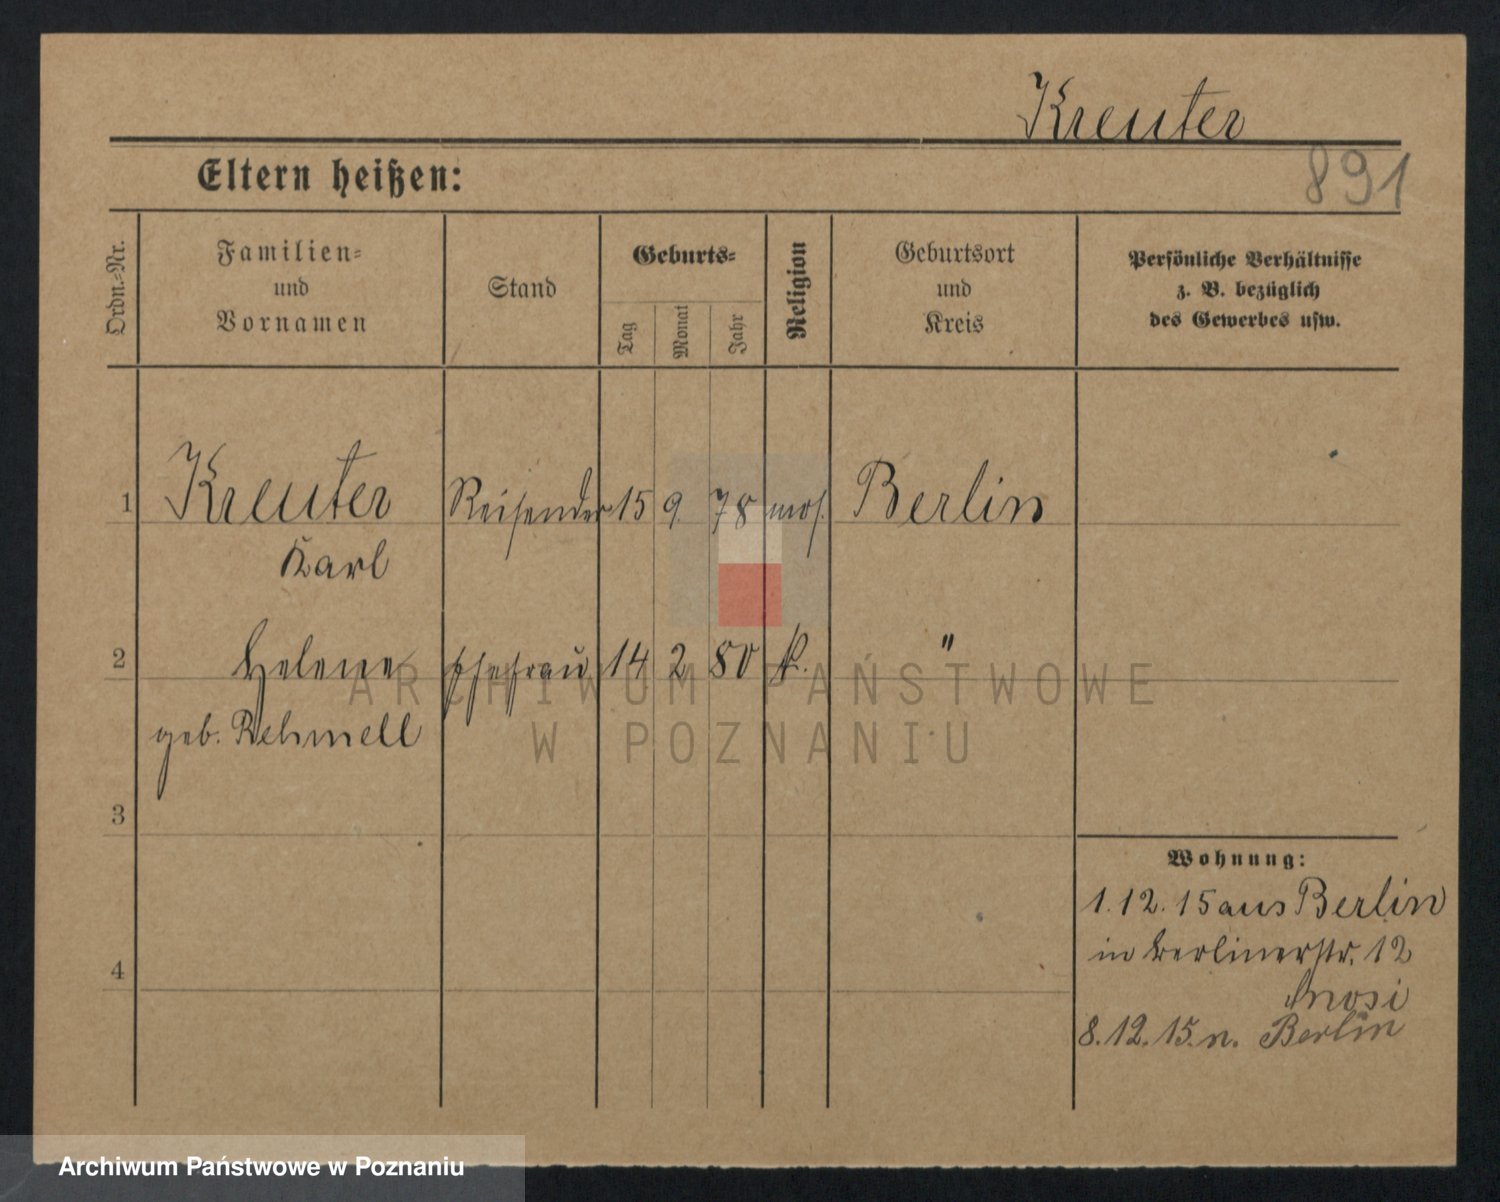 Kreuter
891
Eltern heißen:
Ordn.-Nr.
Familien-
und
Vornamen
Stand
Geburts-
Tag
Monat
Jahr
Religion
Geburtsort
und
Kreis
Persönliche Verhältnisse
z. B. bezüglich
des Gewerbes usw.
1 Kreuter Reisender 15 9. 78 mos. Berlin
Karl
2 Helene Ehefrau 14 2 80 k. "
geb. Rehmell
3
Wohnung:
1.12.15 aus Berlin
in Berlinerstr. 12
4
8.12.15. n. Berlin
ARCHIWUM PAŃSTWOWE
W POZNANIU
Archiwum Państwowe w Poznaniu